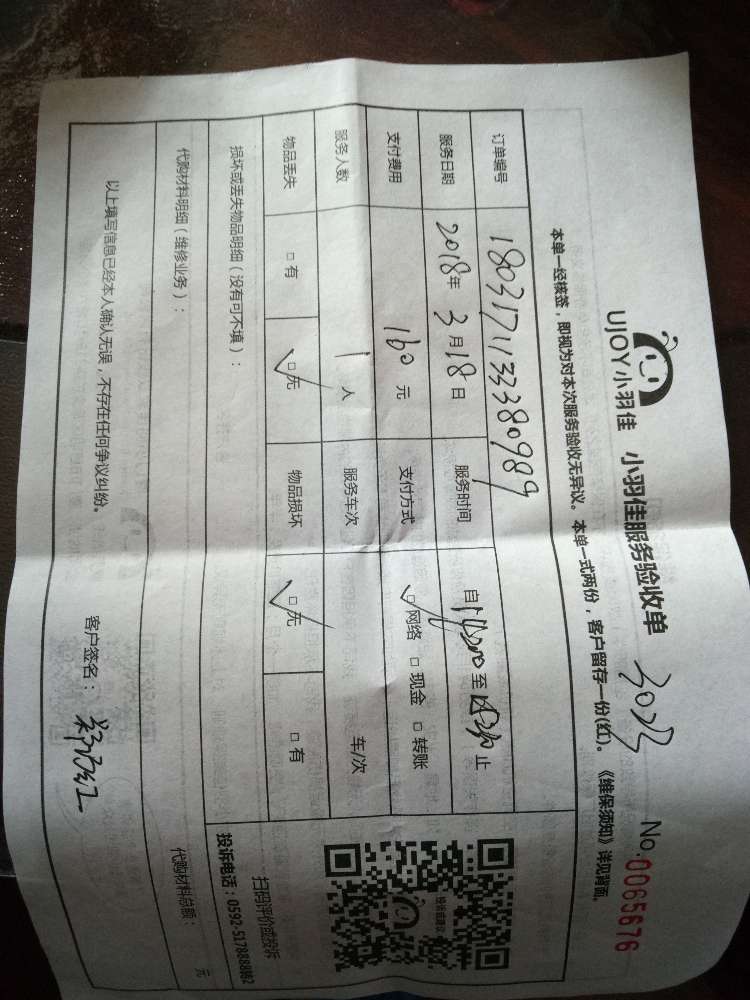 UJOY小羽佳 小羽佳服务验收单 3023 No.0065676
本单一经核签，即视为对本次服务验收无异议。本单一式两份，客户留存一份(红)。《维保须知》详见背面。
订单编号 18031711333380989
服务日期 2018年3月18日 服务时间 自 至 止
支付费用 160元 支付方式 □网络 □现金 □转账
服务人数 1人 服务车次 车/次
物品丢失 □有 □无 物品损坏 □无 □有
损坏或丢失物品明细（没有可不填）：
代购材料明细（维修业务）： 代购材料总额： 元
以上填写信息已经本人确认无误，不存在任何争议纠纷。 客户签名：
投诉或建议
扫码评价或投诉
投诉电话：0592-5178888转62